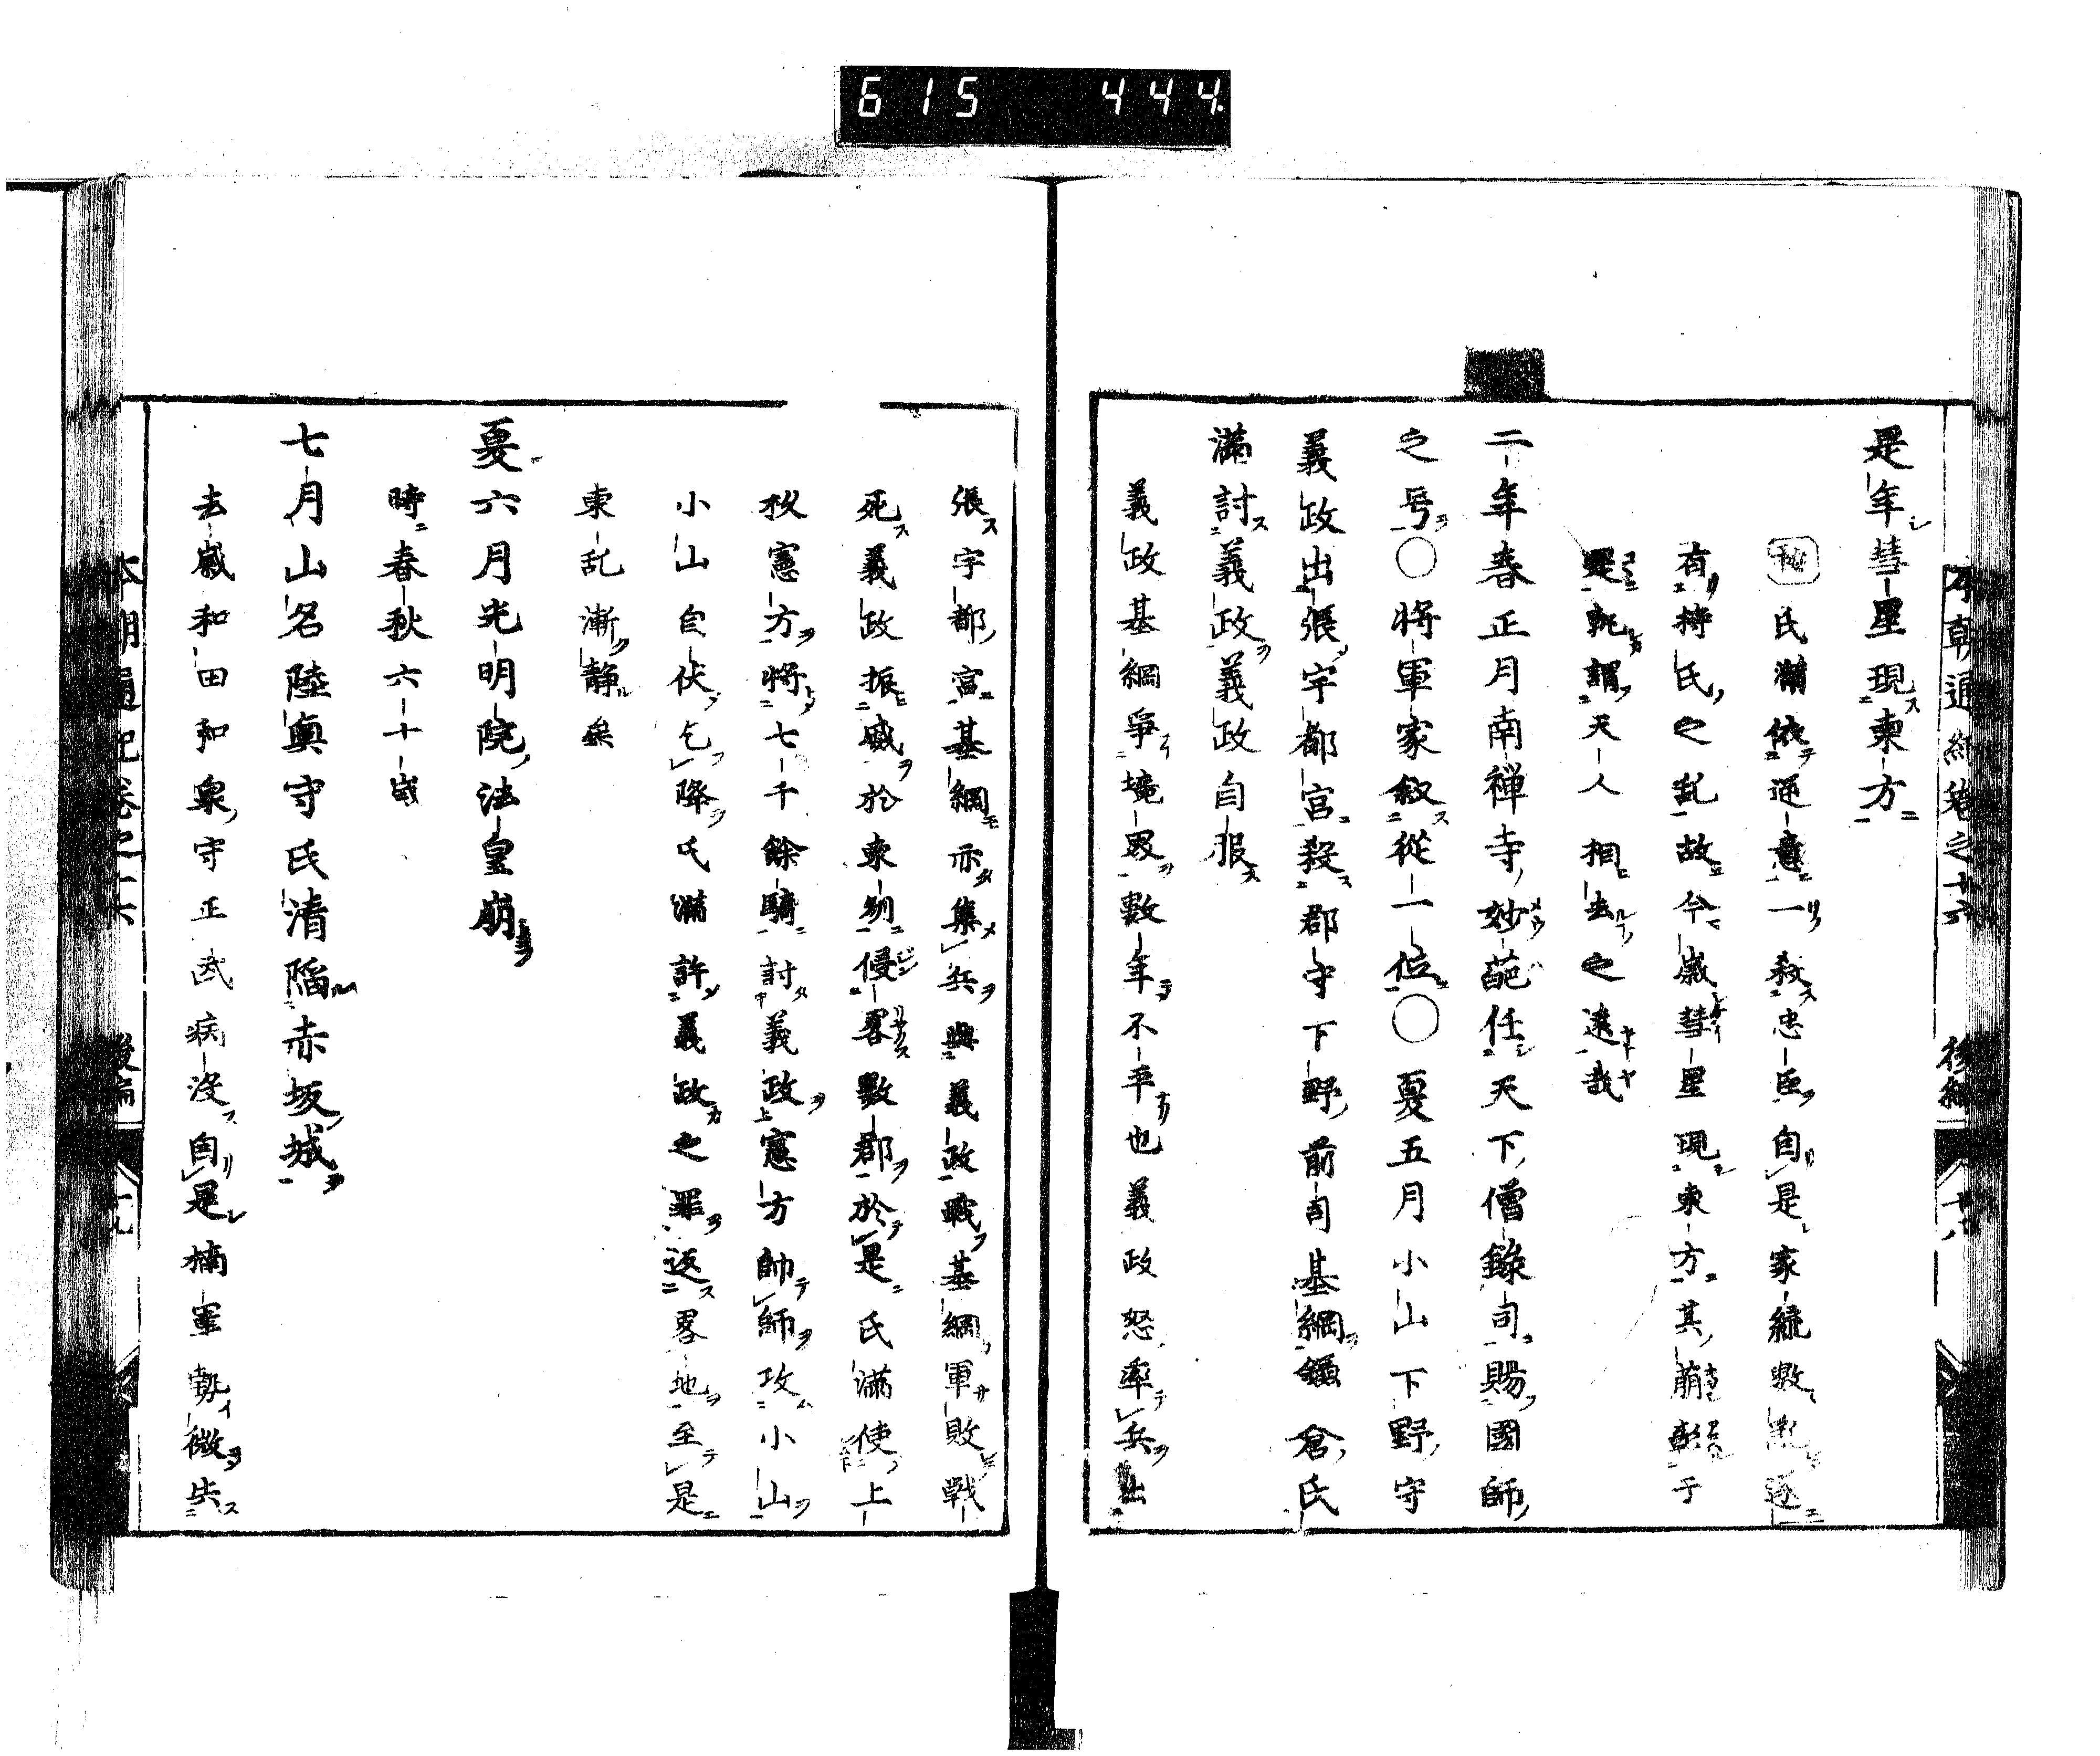 615 444
本朝通紀卷之十六 後編 十八
是年彗星現東方
秘 氏滿依逆意一殺忠臣自是家統數亂逐
有持氏之乱故今歳彗星現東方其萠彰于
是孰謂天人相去之遠哉
二年春正月南禅寺妙葩任天下僧錄司賜國師
之号〇將軍家敘從一位〇夏五月小山下野守
義政出張宇都宮殺郡守下野前司基綱鎌倉氏
滿討義政義政自服
義政基綱爭境界數年不平也義政怒率兵出
張宇都宮基綱亦集兵與義政戰基綱軍敗戰
死義政振威於東列侵畧數郡於是氏滿使上
杦憲方將七千餘騎討義政憲方帥師攻小山
小山自伏乞降氏滿許義政之罪返畧地至是
東乱漸靜矣
夏六月光明院法皇崩
時春秋六十歳
七月山名陸奥守氏清陷赤坂城
去歳和田和泉守正武病没自是楠軍勢微歩
本朝通紀卷之十六 後編 十九